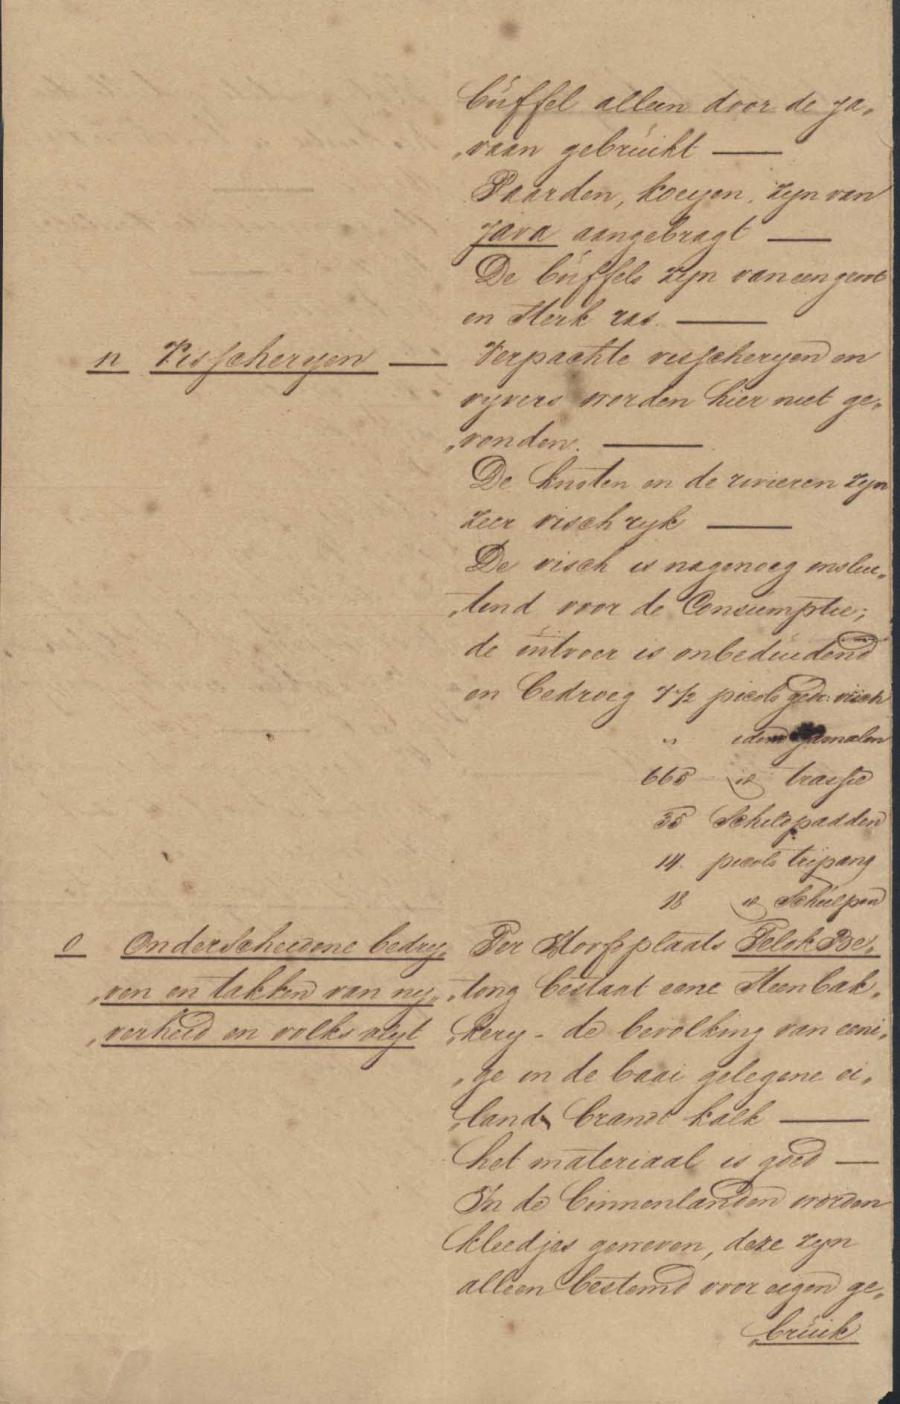 büffel alleen door de Ja„
„vaan gebruikt —
Paarden, koeyen, zyn van
Java aangebragt —
De büffels zyn van een groot
en sterk ras. —
n Visscheryen — Verpachte visscheryen en
vyvers worden hier niet ge„
„vonden. —
De kusten en de rivieren zyn
zeer vischryk —
De visch is nagenoeg onslui„
„tend voor de Consumptie;
de uitvoer is onbeduidend
en bedroeg 7½ picols gedr: visch
„ idem garnalen
665 id trassie
35 Schildpadden
14. picols tripang
18 id Schelpen
o Onderscheidene bedry„ Ter Hoofdplaats Telok Be„
„ven en takken van ny„ „tong bestaat eene Steenbak„
„verheid en volks vlyt „kery – de bevolking van eeni„
„ge in de baai gelegene ei„
„land brandt kalk —
het materiaal is goed —
In de binnenlanden worden
kleedjes geweven, deze zyn
alleen bestemd voor eigen ge„
„bruik